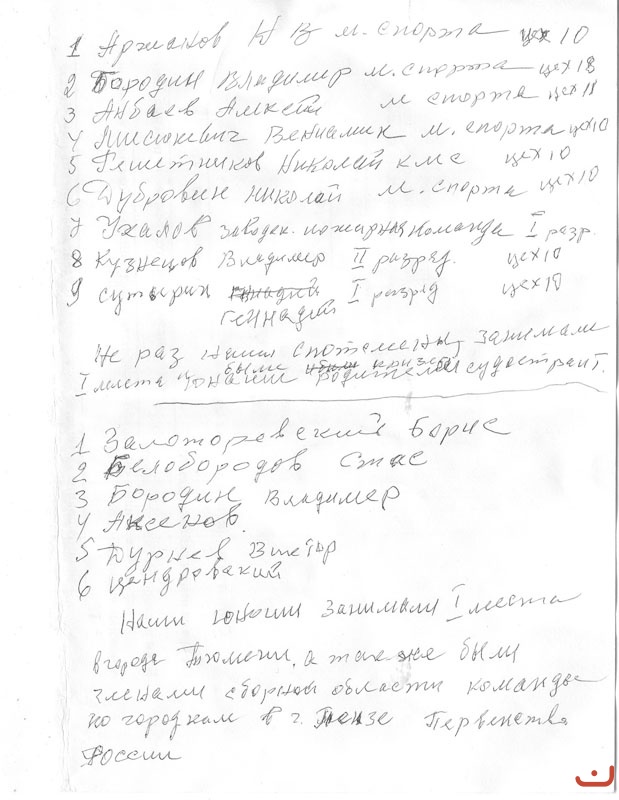 1 Аржанов Н В м. спорта цех 10
2 Бородин Владимер м. спорта цех 18
3 Анбаев Алксей м спорта цех 18
4 Мисюкевич Вениамик м. спорта цех 10
5 Решетников Николай к м с цех 10
6 Дубровин николай м. спорта цех 10
7 Ухалов заводск. пожирная команда I разр.
8 Кузнецов Владимер II разряд. цех 10
9 сутырин I разряд цех 10
геннадий
Не раз наши спотсмены занимали
были призёр
I места юноши судостроит.
1 Залоторевский Борис
2 Белобородов Стас
3 Бородин Владимер
4 Аксенов.
5 Дурнев Виктор
6 цендровский
Наши юноши занимали I места
в городе Тюмени, а так же были
членами сборной области команды
по городкам в г. Пензе Первенства
России